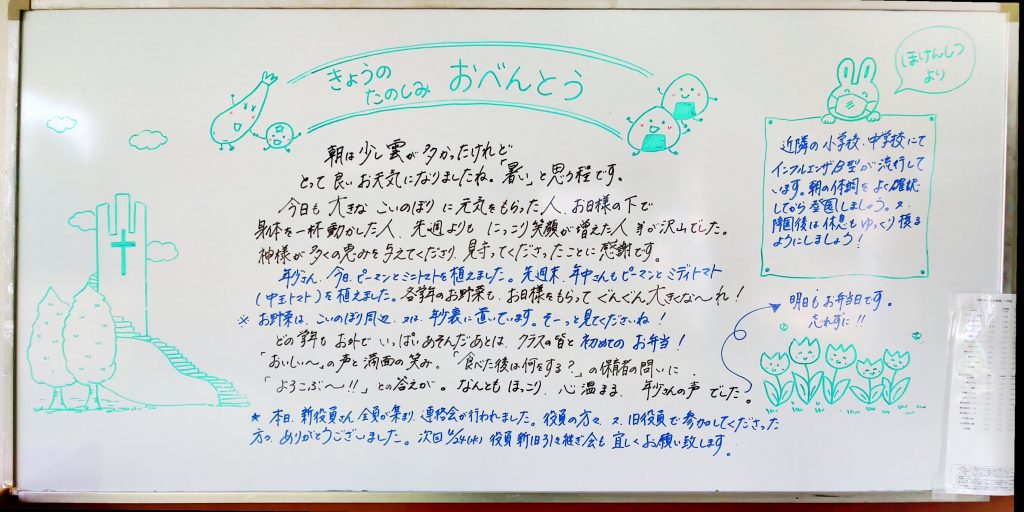 きょうの
たのしみ おべんとう
ほけんしつ
より
朝は少し雲が多かったけれど
とって良いお天気になりましたね。「暑い」と思う程です。
今日も 大きな こいのぼり に元気をもらった人、お日様の下で
身体を一杯動かした人、先週よりも にっこり笑顔が増えた人 等が沢山でした。
神様が多くの恵みを与えてくださり、見守ってくださったことに感謝です。
年少さん、今日、ピーマンとミニトマトを植えました。先週末、年中さんもピーマンとミディトマト
(中玉トマト)を植えました。各学年のお野菜も、お日様をもらって ぐんぐん大きくな〜れ!
※ お野菜は、こいのぼり周辺、又は、年少裏に置いています。そーっと見てくださいね!
どの学年も お外で いっぱいあそんだあとは、クラスの皆と 初めての お弁当!
「おいしい〜」の声と満面の笑み。「食べた後は何をする?」の保育者の問いに、
「よろこぶ〜!!」との答えが。なんとも ほっこり、心温まる、年少さんの声 でした。
★ 本日、新役員さん 全員が集まり、連絡会が行われました。役員の方々、又、旧役員で参加してくださった
方々、ありがとうございました。次回 /24(木) 役員 新旧引き継ぎ会も 宜しくお願い致します。
近隣の小学校、中学校にて
インフルエンザB型が流行して
います。朝の体調をよく確認
してから登園しましょう。又、
降園後は休息もゆっくり摂る
ようにしましょう!
明日もお弁当日です。
忘れずに!!